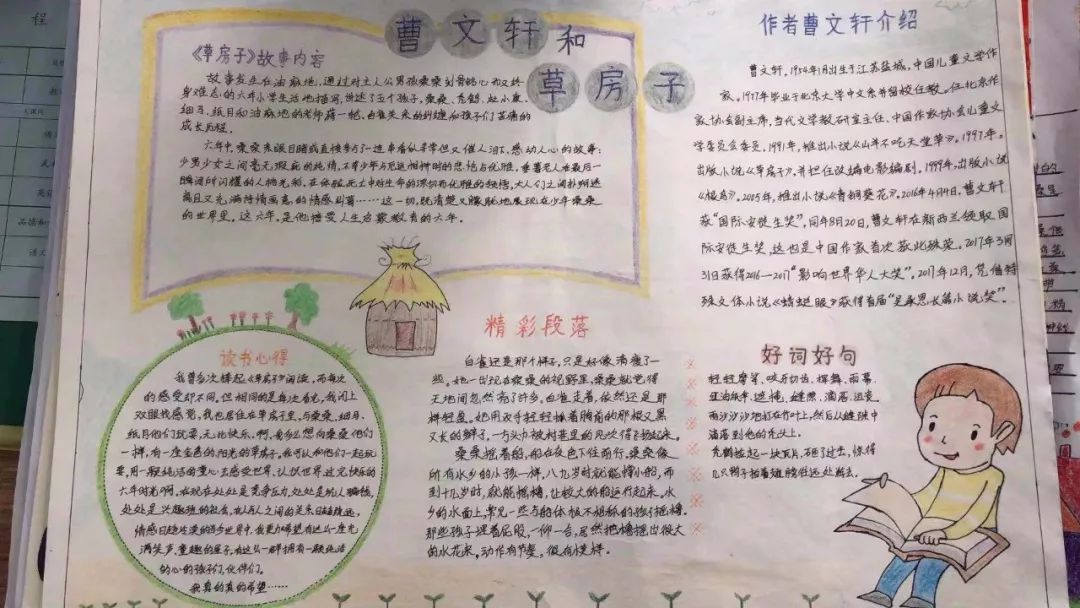 曹文轩和
草房子
《草房子》故事内容
故事发生在油麻地,通过对主人公男孩桑桑刻骨铭心而又终
身难忘的六年小学生活地描写,讲述了五个孩子,桑桑、秃鹤、杜小康、
细马、纸月和油麻地的老师蒋一轮、白雀关系的纠缠和孩子们苦痛的
成长历程。
六年中,桑桑亲眼目睹或直接参与了一连串看似寻常但又催人泪下、感动人心的故事:
少男少女之间毫无瑕疵的纯情,不幸少年与厄运相拼时的悲怆与优雅,垂暮老人在最后一
瞬间所闪耀的人格光彩,在体验死亡中对生命的深切而优雅的领悟,大人们之间扑朔迷
离且又充满诗情画意的情感纠葛……这一切,既清楚又朦胧地展现在少年桑桑
的世界里。这六年,是他接受人生启蒙教育的六年。
作者曹文轩介绍
曹文轩,1954年1月出生于江苏盐城,中国儿童文学作
家。1977年毕业于北京大学中文系并留校任教。任北京作
家协会副主席,当代文学教研室主任,中国作家协会儿童文
学委员会委员,1991年,推出小说《山羊不吃天堂草》。1997年。
出版小说《草房子》,并担任改编电影编剧。1999年,出版小说
《根鸟》。2005年,推出小说《青铜葵花》。2016年4月4日,曹文轩
获“国际安徒生奖”,同年8月20日,曹文轩在新西兰领取国
际安徒生奖,这也是中国作家首次获此殊荣。2017年3月
31日获得2016—2017“影响世界华人大奖”。2017年12月,凭借特
殊文体小说《蜻蜓眼》获得首届“吴承恩长篇小说奖”。
读书心得
我曾多次捧起《草房子》阅读,而每次
的感受却不同,但相同的是每次看完,我闭上
双眼找感觉,我也居住在草房子里,与桑桑、细马、
纸月他们玩耍,无比快乐。啊,我多么想向桑桑他们
一样,有一座金色的阳光的草房子,我可以和他们一起玩
耍,用一颗纯洁的童心去感受世界,认识世界,过完快乐的
六年时光啊。在现在处处是竞争压力,处处是
处处是兴趣班的社会,在人与人之间的关系日趋疏远,
情感日趋冷漠的当今世界中,我更加希望有这么一座充
满笑声、童趣的屋子,有这么一群拥有一颗纯洁
的心的孩子们,伙伴们。
我真的真的希望……
精彩段落
白雀还是那个样子,只是好像清瘦了一
些。她一出现在桑桑的视野里,桑桑就觉得
天地间忽然亮了许多。白雀走着,依然还是那
样轻盈。她用双手轻轻揉着胸前的那根又黑
又长的辫子,一方头巾被村巷里的风吹得飞扬起来。
桑桑摇着船,船在夜色下往前行,桑桑像
所有水乡的小孩一样,八九岁时就能撑小船,而
到十几岁时,就能摇橹,让较大的船运行起来。水
乡的水面上,常见一些与船体极不相称的孩子摇橹,
那些孩子撅着屁股,一仰一合,居然把橹摇出很大
的水花来。动作有节奏,很有模样。
好词好句
轻轻摩挲、咬牙切齿、挥舞、雨幕、
雨沙沙沙地打在竹叶上,然后从缝隙中
滴落到他的秃头上。
秃鹤捡起一块瓦片,砸了过去,惊得
几只鸭子拍着翅膀往远处游去。